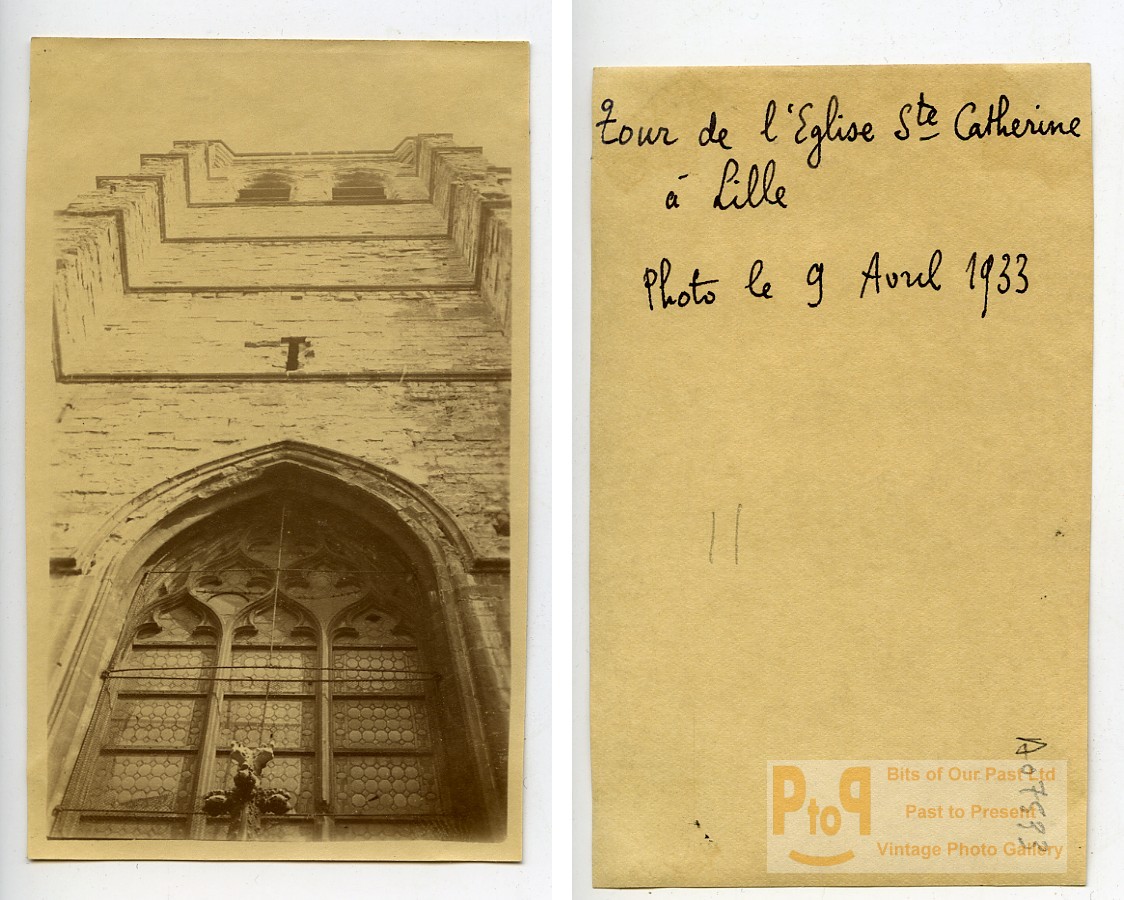 Tour de l'Eglise Ste Catherine
à Lille
Photo le 9 Avril 1933
PtoP
Bits of Our Past Ltd
Past to Present
Vintage Photo Gallery